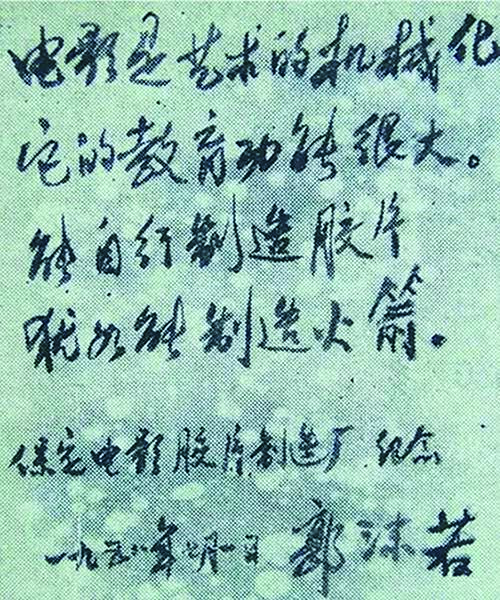 电影是艺术的机械化
它的教育功能很大。
能自行制造胶片
犹如能制造火箭。
保定电影胶片制造厂 纪念
一九五八年 月一日 郭沫若